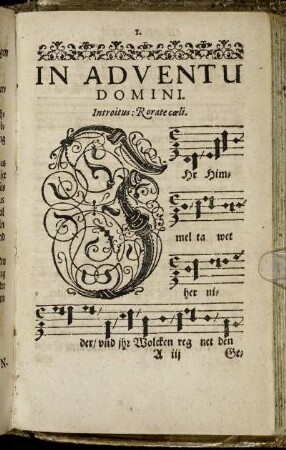 1.
IN ADVENTU
DOMINI.
Introitus: Rorate cœli.
IHr Him-
mel ta wet
her ni-
der/ vnd jhr Wolcken reg net den
A iij Ge-
N-